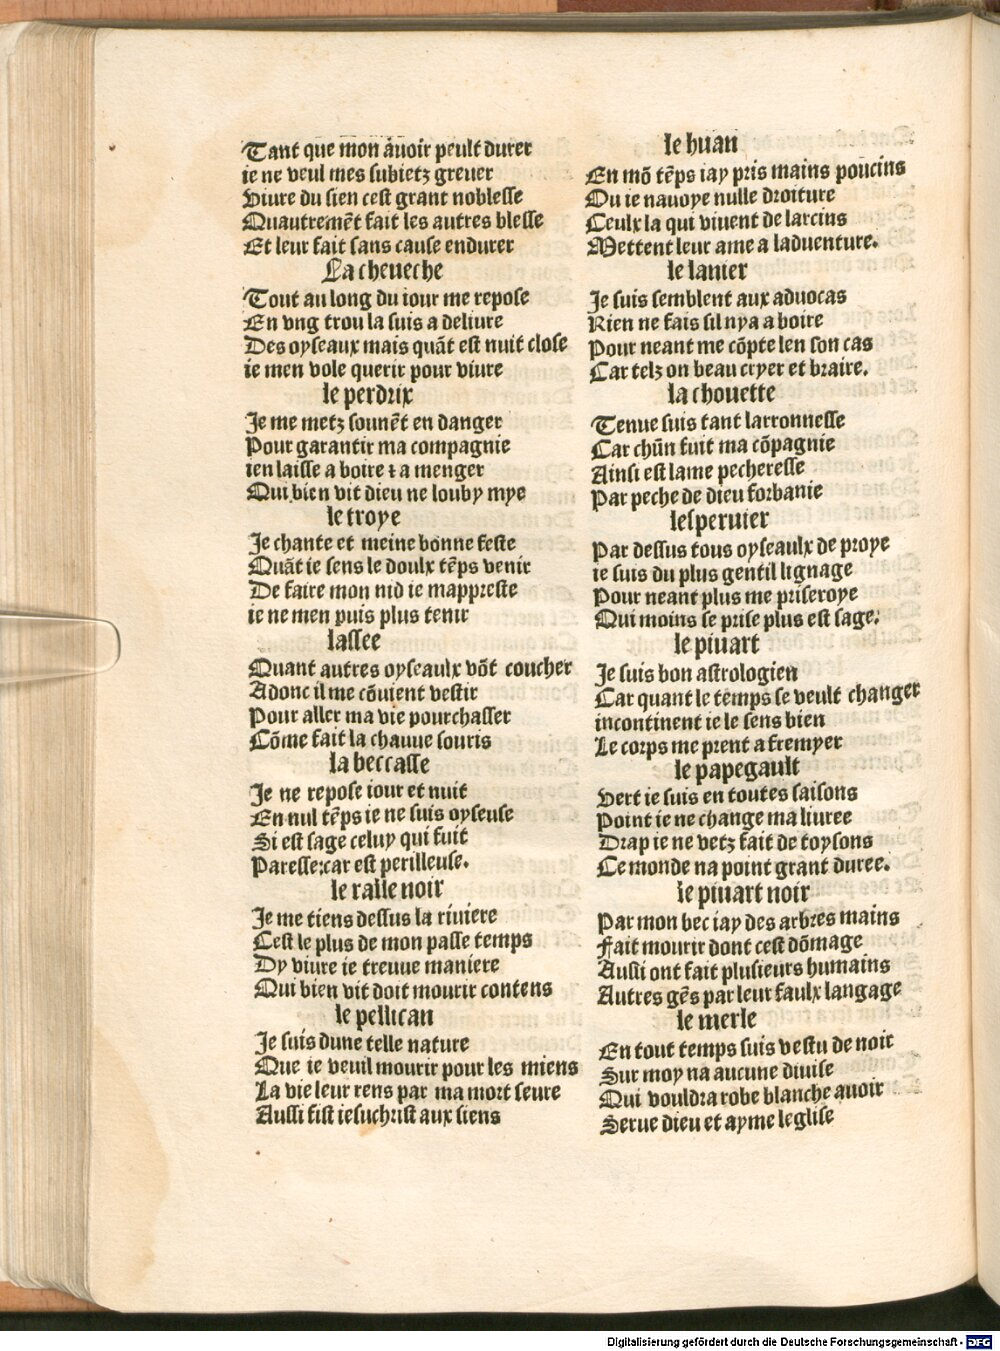 Tant que mon auoir peult durer
ie ne veul mes subietz greuer
Viure du sien cest grant noblesse
Quautremēt fait les autres blesse
Et leur fait sans cause endurer
La cheueche
Tout au long du iour me repose
En vng trou la suis a deliure
Des oyseaux mais quāt est nuit close
ie men vole querir pour viure
le perdrix
Je me metz souuēt en danger
Pour garantir ma compagnie
ien laisse a boire ⁊ a menger
Qui bien vit dieu ne louby mye
le troye
Je chante et meine bonne feste
Quāt ie sens le doulx tēps venir
De faire mon nid ie mappreste
ie ne men puis plus tenir
lassee
Quant autres oyseaulx vōt coucher
Adonc il me cōuient vestir
Pour aller ma vie pourchasser
Cōme fait la chauue souris
la beccasse
Je ne repose iour et nuit
En nul tēps ie ne suis oyseuse
Si est sage celuy qui fuit
Paresse:car est perilleuse.
le ralle noir
Je me tiens dessus la riuiere
Cest le plus de mon passe temps
Dy viure ie treuue maniere
Qui bien vit doit mourir contens
le pellican
Je suis dune telle nature
Que ie veuil mourir pour les miens
La vie leur rens par ma mort seure
Aussi fist iesuchrist aux siens
le huan
En mō tēps iay pris mains poucins
Ou ie nauoye nulle droiture
Ceulx la qui viuent de larcins
Mettent leur ame a laduenture.
le lanier
Je suis semblent aux aduocas
Rien ne fais sil nya a boire
Pour neant me cōpte len son cas
Car telz on beau cryer et braire.
la chouette
Tenue suis tant larronnesse
Car chūn fuit ma cōpagnie
Ainsi est lame pecheresse
Par peche de dieu forbanie
lesperuier
Par dessus tous oyseaulx de proye
ie suis du plus gentil lignage
Pour neant plus me priseroye
Qui moins se prise plus est sage.
le piuart
Je suis bon astrologien
Car quant le temps se veult changer
incontinent ie le sens bien
Le corps me prent a fremyer
le papegault
Vert ie suis en toutes saisons
Point ie ne change ma liuree
Drap ie ne vetz fait de toysons
Ce monde na point grant duree.
le piuart noir
Par mon bec iay des arbres mains
Fait mourir dont cest dōmage
Aussi ont fait plusieurs humains
Autres gēs par leur faulx langage
le merle
En tout temps suis vestu de noir
Sur moy na aucune diuise
Qui vouldra robe blanche auoir
Serue dieu et ayme leglise
Digitalisierung gefördert durch die Deutsche Forschungsgemeinschaft - DFG